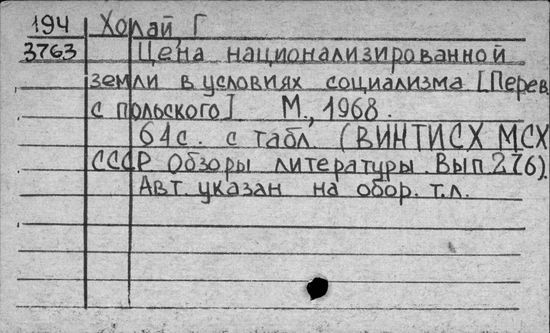 194 Холай, Г
3763 Цена национализированной
земли в условиях социализма [Перев.
с польского] М., 1968.
64с. с табл. (ВИНТИСХ МСХ
СССР Обзоры литературы. Вып 276).
Авт. указан на обор. т.л.